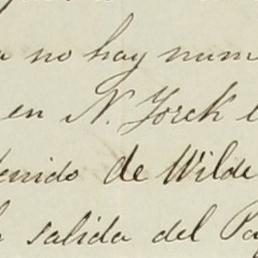 no hay num
en N. Yorck
enido de Wilde
salida del Pa